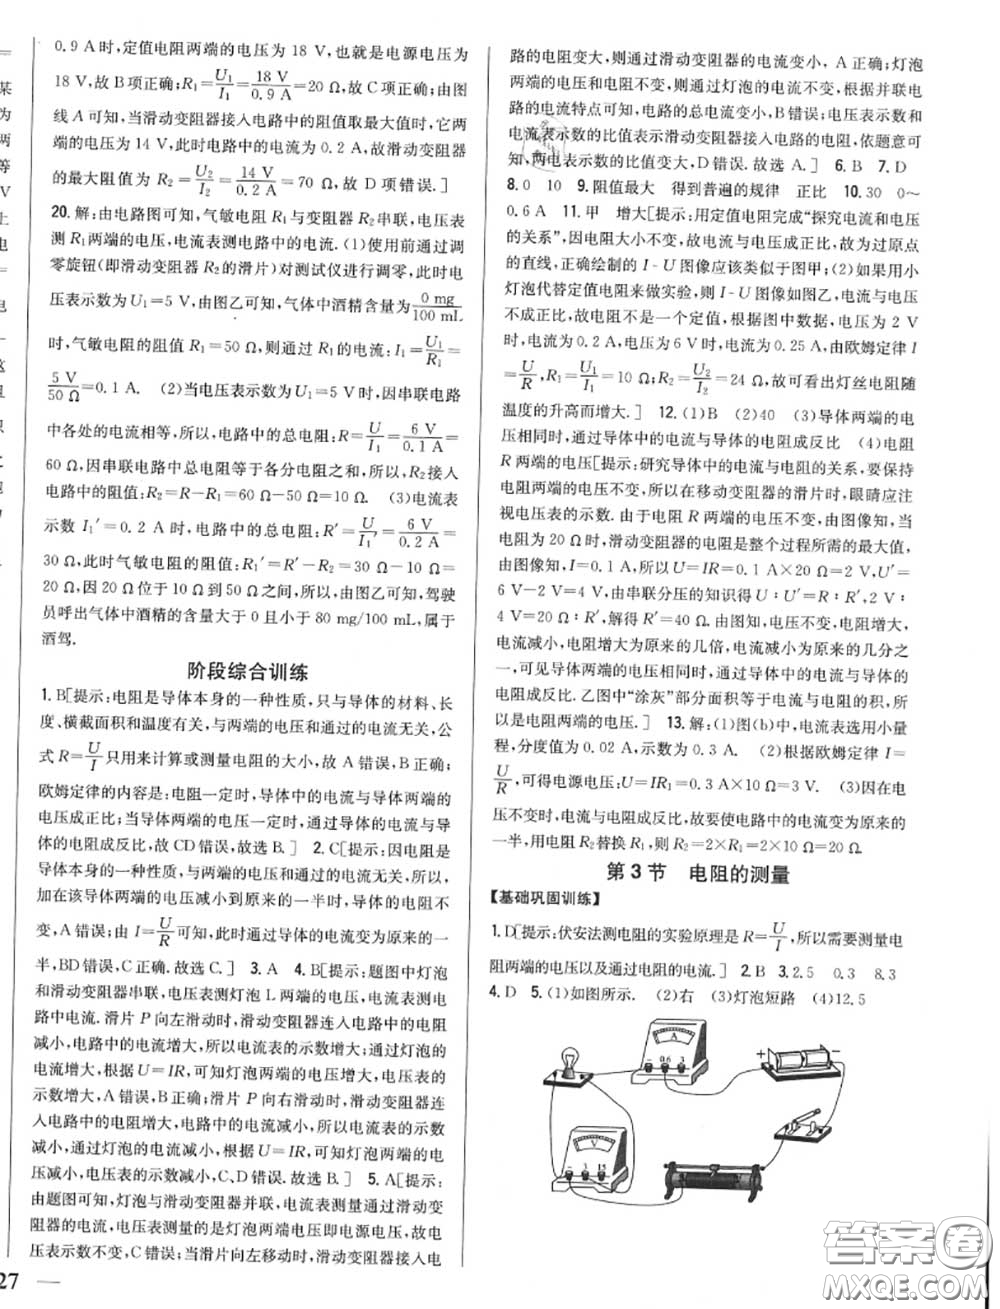 0.9 A时,定值电阻两端的电压为 18 V,也就是电源电压为
18 V,故 B项正确;R₁=U₁/I₁=18 V/0.9 A=20 Ω,故 C项正确;由图
线 A 可知,当滑动变阻器接入电路中的阻值取最大值时,它两
端的电压为 14 V,此时电路中的电流为 0.2 A,故滑动变阻器
的最大阻值为 R₂=U₂/I₂=14 V/0.2 A=70 Ω,故 D 项错误.]
20.解:由电路图可知,气敏电阻 R₁与变阻器 R₂串联,电压表
测 R₁两端的电压,电流表测电路中的电流.(1)使用前通过调
零旋钮(即滑动变阻器 R₂的滑片)对测试仪进行调零,此时电
压表示数为 U₁=5 V,由图乙可知,气体中酒精含量为0 mg/100 mL
时,气敏电阻的阻值 R₁=50 Ω,则通过 R₁的电流:I₁=U₁/R₁=
5 V/50 Ω=0.1 A. (2)当电压表示数为U₁=5 V时,因串联电路
中各处的电流相等,所以,电路中的总电阻:R=U/I=6 V/0.1 A=
60 Ω,因串联电路中总电阻等于各分电阻之和,所以,R₂接入
电路中的阻值:R₂=R-R₁=60 Ω-50 Ω=10 Ω. (3)电流表
示数 I₁′=0.2 A 时,电路中的总电阻:R′=U/I₁′=6 V/0.2 A=
30 Ω,此时气敏电阻的阻值:R₁′=R′-R₂=30 Ω-10 Ω=
20 Ω,因 20 Ω位于 10 Ω到50 Ω之间,所以,由图乙可知,驾驶
员呼出气体中酒精的含量大于 0 且小于 80 mg/100 mL,属于
酒驾.
阶段综合训练
1.B[提示:电阻是导体本身的一种性质,只与导体的材料、长
度、横截面积和温度有关,与两端的电压和通过的电流无关,公
式 R=U/I只用来计算或测量电阻的大小,故 A 错误,B 正确;
欧姆定律的内容是:电阻一定时,导体中的电流与导体两端的
电压成正比;当导体两端的电压一定时,通过导体的电流与导
体的电阻成反比,故CD错误,故选 B.] 2.C[提示:因电阻是
导体本身的一种性质,与两端的电压和通过的电流无关,所以,
加在该导体两端的电压减小到原来的一半时,导体的电阻不
变,A 错误;由 I=U/R可知,通过导体的电流变为原来的一
半,BD错误,C正确.故选 C.] 3.A 4.B[提示:题图中灯泡
和滑动变阻器串联,电压表测灯泡 L 两端的电压,电流表测电
路中的电流.滑片 P 向左滑动时,滑动变阻器连入电路中的电阻
减小,电路中的电流增大,所以电流表的示数增大;通过灯泡的
电流增大,根据 U=IR,可知灯泡的电压增大,电压表的
示数增大,A错误;B正确;滑片 P 向右滑动时,滑动变阻器连
入电路中的电阻增大,电路中的电流减小,所以电流表的示数
减小,通过灯泡的电流减小,根据 U=IR,可知灯泡两端的电
压减小,电压表的示数减小,C、D错误;故选 B.] 5.A[提示:
由题图可知,灯泡与滑动变阻器并联,电流表测量通过滑动变
阻器的电流,电压表测量的是灯泡两端电压即电源电压,故电
压表示数不变,C错误.当滑片向左滑动时,滑动变阻器接入电
27
路的电阻变大,则通过滑动变阻器的电流变小,A正确;灯泡两
端的电压和电阻不变,则通过灯泡的电流不变,根据并联电
路的电流特点可知,电路的总电流变小,B错误;电压表示数和
电流表示数的比值表示滑动变阻器接入电路的电阻,依题意可
知,两电表示数的比值变大,D 错误.故选 A.] 6.B 7.D
8.0 10 9.阻值最大 得到普遍的规律 正比 10.30 0~
0.6 A 11.甲 增大[提示:用定值电阻完成“探究电流和电压
的关系”,因电阻大小不变,故电流与电压成正比,故为过原点
的直线,正确绘制的 I-U 图像应该类似于图甲;(2)如果用小
灯泡代替定值电阻来做实验,则 I-U 图像如图乙,电流与电压
不成正比,故电阻不是一个定值,根据图中数据,电压为 2 V
时,电流为0.2 A,电压为6 V时,电流为 0.25 A,由欧姆定律 I
=U/R,R₁=U₁/I₁=10 Ω;R₂=U₂/I₂=24 Ω,故可看出灯丝电阻随
温度的升高而增大.] 12.(1)B (2)40 (3)导体两端的电
压相同时,通过导体中的电流与导体的电阻成反比 (4)电阻
R 两端的电压[提示:研究导体中的电流与电阻的关系,要保持
电阻两端的电压不变,所以在移动变阻器的滑片时,眼睛应注
视电压表的示数.由于电阻 R 两端的电压不变,由图像知,当
电阻为 20 Ω时,滑动变阻器的电阻是整个过程所需的最大值,
由图像知,I=0.1 A,此时电压为U=IR=0.1 A×20 Ω=2 V,U′=
6 V-2 V=4 V,由串联分压的知识得 U:U′=R:R′,2 V:
4 V=20 Ω:R′,解得 R′=40 Ω.由图知,电压不变,电阻增大,
电流减小,电阻增大为原来的几倍,电流减小为原来的几分之
一,可见导体两端的电压相同时,通过导体中的电流与导体的
电阻成反比.乙图中“涂灰”部分面积等于电流与电阻的积,所
以是电阻两端的电压.] 13.解:(1)图(b)中,电流表选用小量
程,分度值为 0.02 A,示数为 0.3 A. (2)根据欧姆定律 I=
U/R,可得电源电压:U=IR₁=0.3 A×10 Ω=3 V. (3)因在电
压不变时,电流与电阻成反比,故要使电路中的电流变为原来的
一半,用电阻 R₂替换 R₁,则R₂=2×R₁=2×10 Ω=20 Ω.
第 3 节 电阻的测量
【基础巩固训练】
1.D[提示:伏安法测电阻的实验原理是 R=U/I,所以需要测量电
阻两端的电压以及通过电阻的电流.] 2.B 3.2.5 0.3 8.3
4.D 5.(1)如图所示. (2)右 (3)灯泡短路 (4)12.5
A
- 0.6 3
+
-
V
- 3 15
答案圈
MXQE.COM